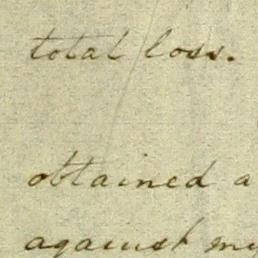 total loss.
obtained a
against my